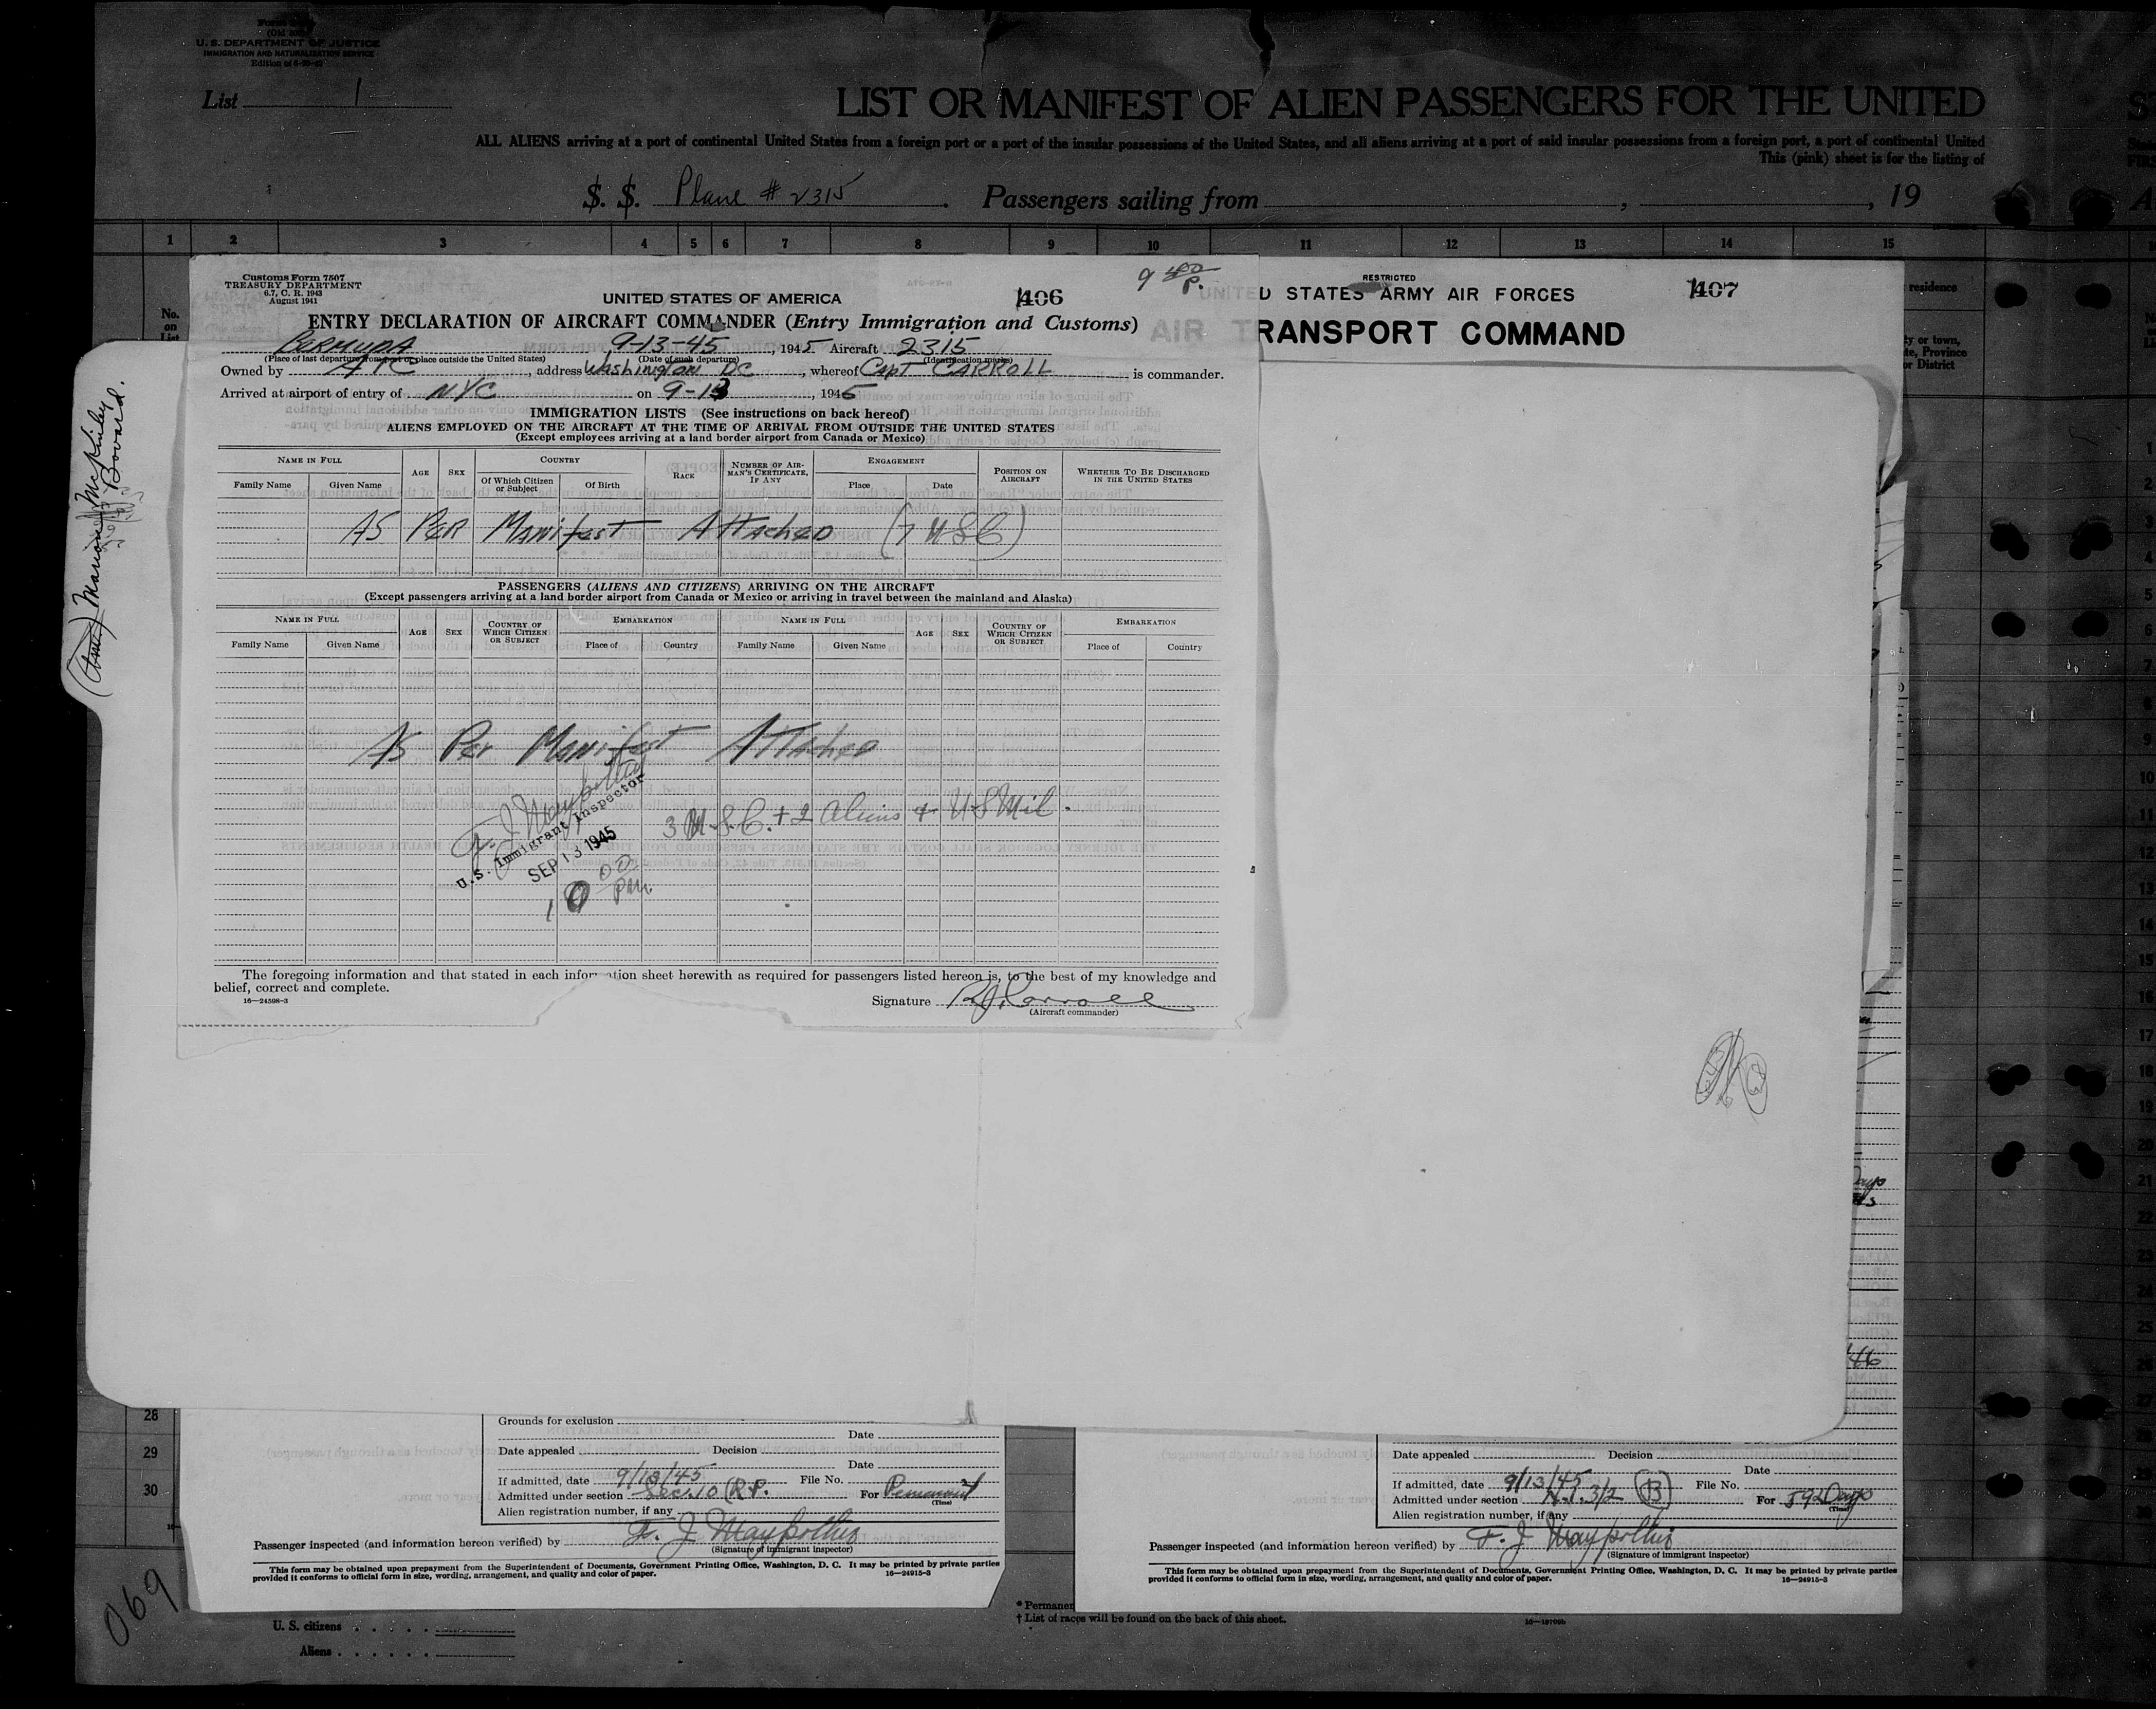 U. S. DEPARTMENT OF JUSTICE
IMMIGRATION AND NATURALIZATION SERVICE
List 1
LIST OR MANIFEST OF ALIEN PASSENGERS FOR THE UNITED
ALL ALIENS arriving at a port of continental United States from a foreign port or a port of the insular possessions of the United States, and all aliens arriving at a port of said insular possessions from a foreign port, a port of continental United
This (pink) sheet is for the listing of
S. S. Plane # 2315 . Passengers sailing from , , 19
1 2 3 4 5 6 7 8 9 10 11 12 13 14 15
Customs Form 7507
TREASURY DEPARTMENT
6.7, C. R. 1943
August 1941
UNITED STATES OF AMERICA
1406
ENTRY DECLARATION OF AIRCRAFT COMMANDER (Entry Immigration and Customs)
BERMUDA 9-13-45, 1945 Aircraft 2315
(Place of last departure from port or place outside the United States) (Date of such departure) (Identification marks)
Owned by ATC, address Washington DC, whereof Capt CARROLL is commander.
Arrived at airport of entry of NYC on 9-13, 1945
IMMIGRATION LISTS (See instructions on back hereof)
ALIENS EMPLOYED ON THE AIRCRAFT AT THE TIME OF ARRIVAL FROM OUTSIDE THE UNITED STATES
(Except employees arriving at a land border airport from Canada or Mexico)
NAME IN FULL AGE SEX COUNTRY RACE NUMBER OF AIRMAN'S CERTIFICATE, IF ANY ENGAGEMENT POSITION ON AIRCRAFT WHETHER TO BE DISCHARGED IN THE UNITED STATES
Family Name Given Name Of Which Citizen or Subject Of Birth Place Date
AS PER Manifest Attached (7 USC)
PASSENGERS (ALIENS AND CITIZENS) ARRIVING ON THE AIRCRAFT
(Except passengers arriving at a land border airport from Canada or Mexico or arriving in travel between the mainland and Alaska)
NAME IN FULL AGE SEX COUNTRY OF WHICH CITIZEN OR SUBJECT EMBARKATION NAME IN FULL AGE SEX COUNTRY OF WHICH CITIZEN OR SUBJECT EMBARKATION
Family Name Given Name Place of Country Family Name Given Name Place of Country
AS Per Manifest Attached
3 U.S.C. + 2 Aliens + US Mil.
U.S. Immigrant Inspector
SEP 13 1945
10 00 PM.
The foregoing information and that stated in each information sheet herewith as required for passengers listed hereon is, to the best of my knowledge and
belief, correct and complete.
16—24598-3
Signature
(Aircraft commander)
RESTRICTED
UNITED STATES ARMY AIR FORCES
1407
AIR TRANSPORT COMMAND
Marion McKinley
Bovard.
28
29
30
Grounds for exclusion
Date
Date appealed Decision
Date
If admitted, date 9/13/45 File No.
Admitted under section Sec. 10 (R.P. For Permanent
(Time)
Alien registration number, if any
Passenger inspected (and information hereon verified) by F. J. Maypother
(Signature of immigrant inspector)
This form may be obtained upon prepayment from the Superintendent of Documents, Government Printing Office, Washington, D. C. It may be printed by private parties
provided it conforms to official form in size, wording, arrangement, and quality and color of paper. 16—24915-3
Date appealed Decision
Date
If admitted, date 9/13/45 File No.
Admitted under section 3/2 (B) For
(Time)
Alien registration number, if any
Passenger inspected (and information hereon verified) by F. J. Maypother
(Signature of immigrant inspector)
This form may be obtained upon prepayment from the Superintendent of Documents, Government Printing Office, Washington, D. C. It may be printed by private parties
provided it conforms to official form in size, wording, arrangement, and quality and color of paper. 16—24915-3
* Permanen
† List of races will be found on the back of this sheet.
U. S. citizens
Aliens
069